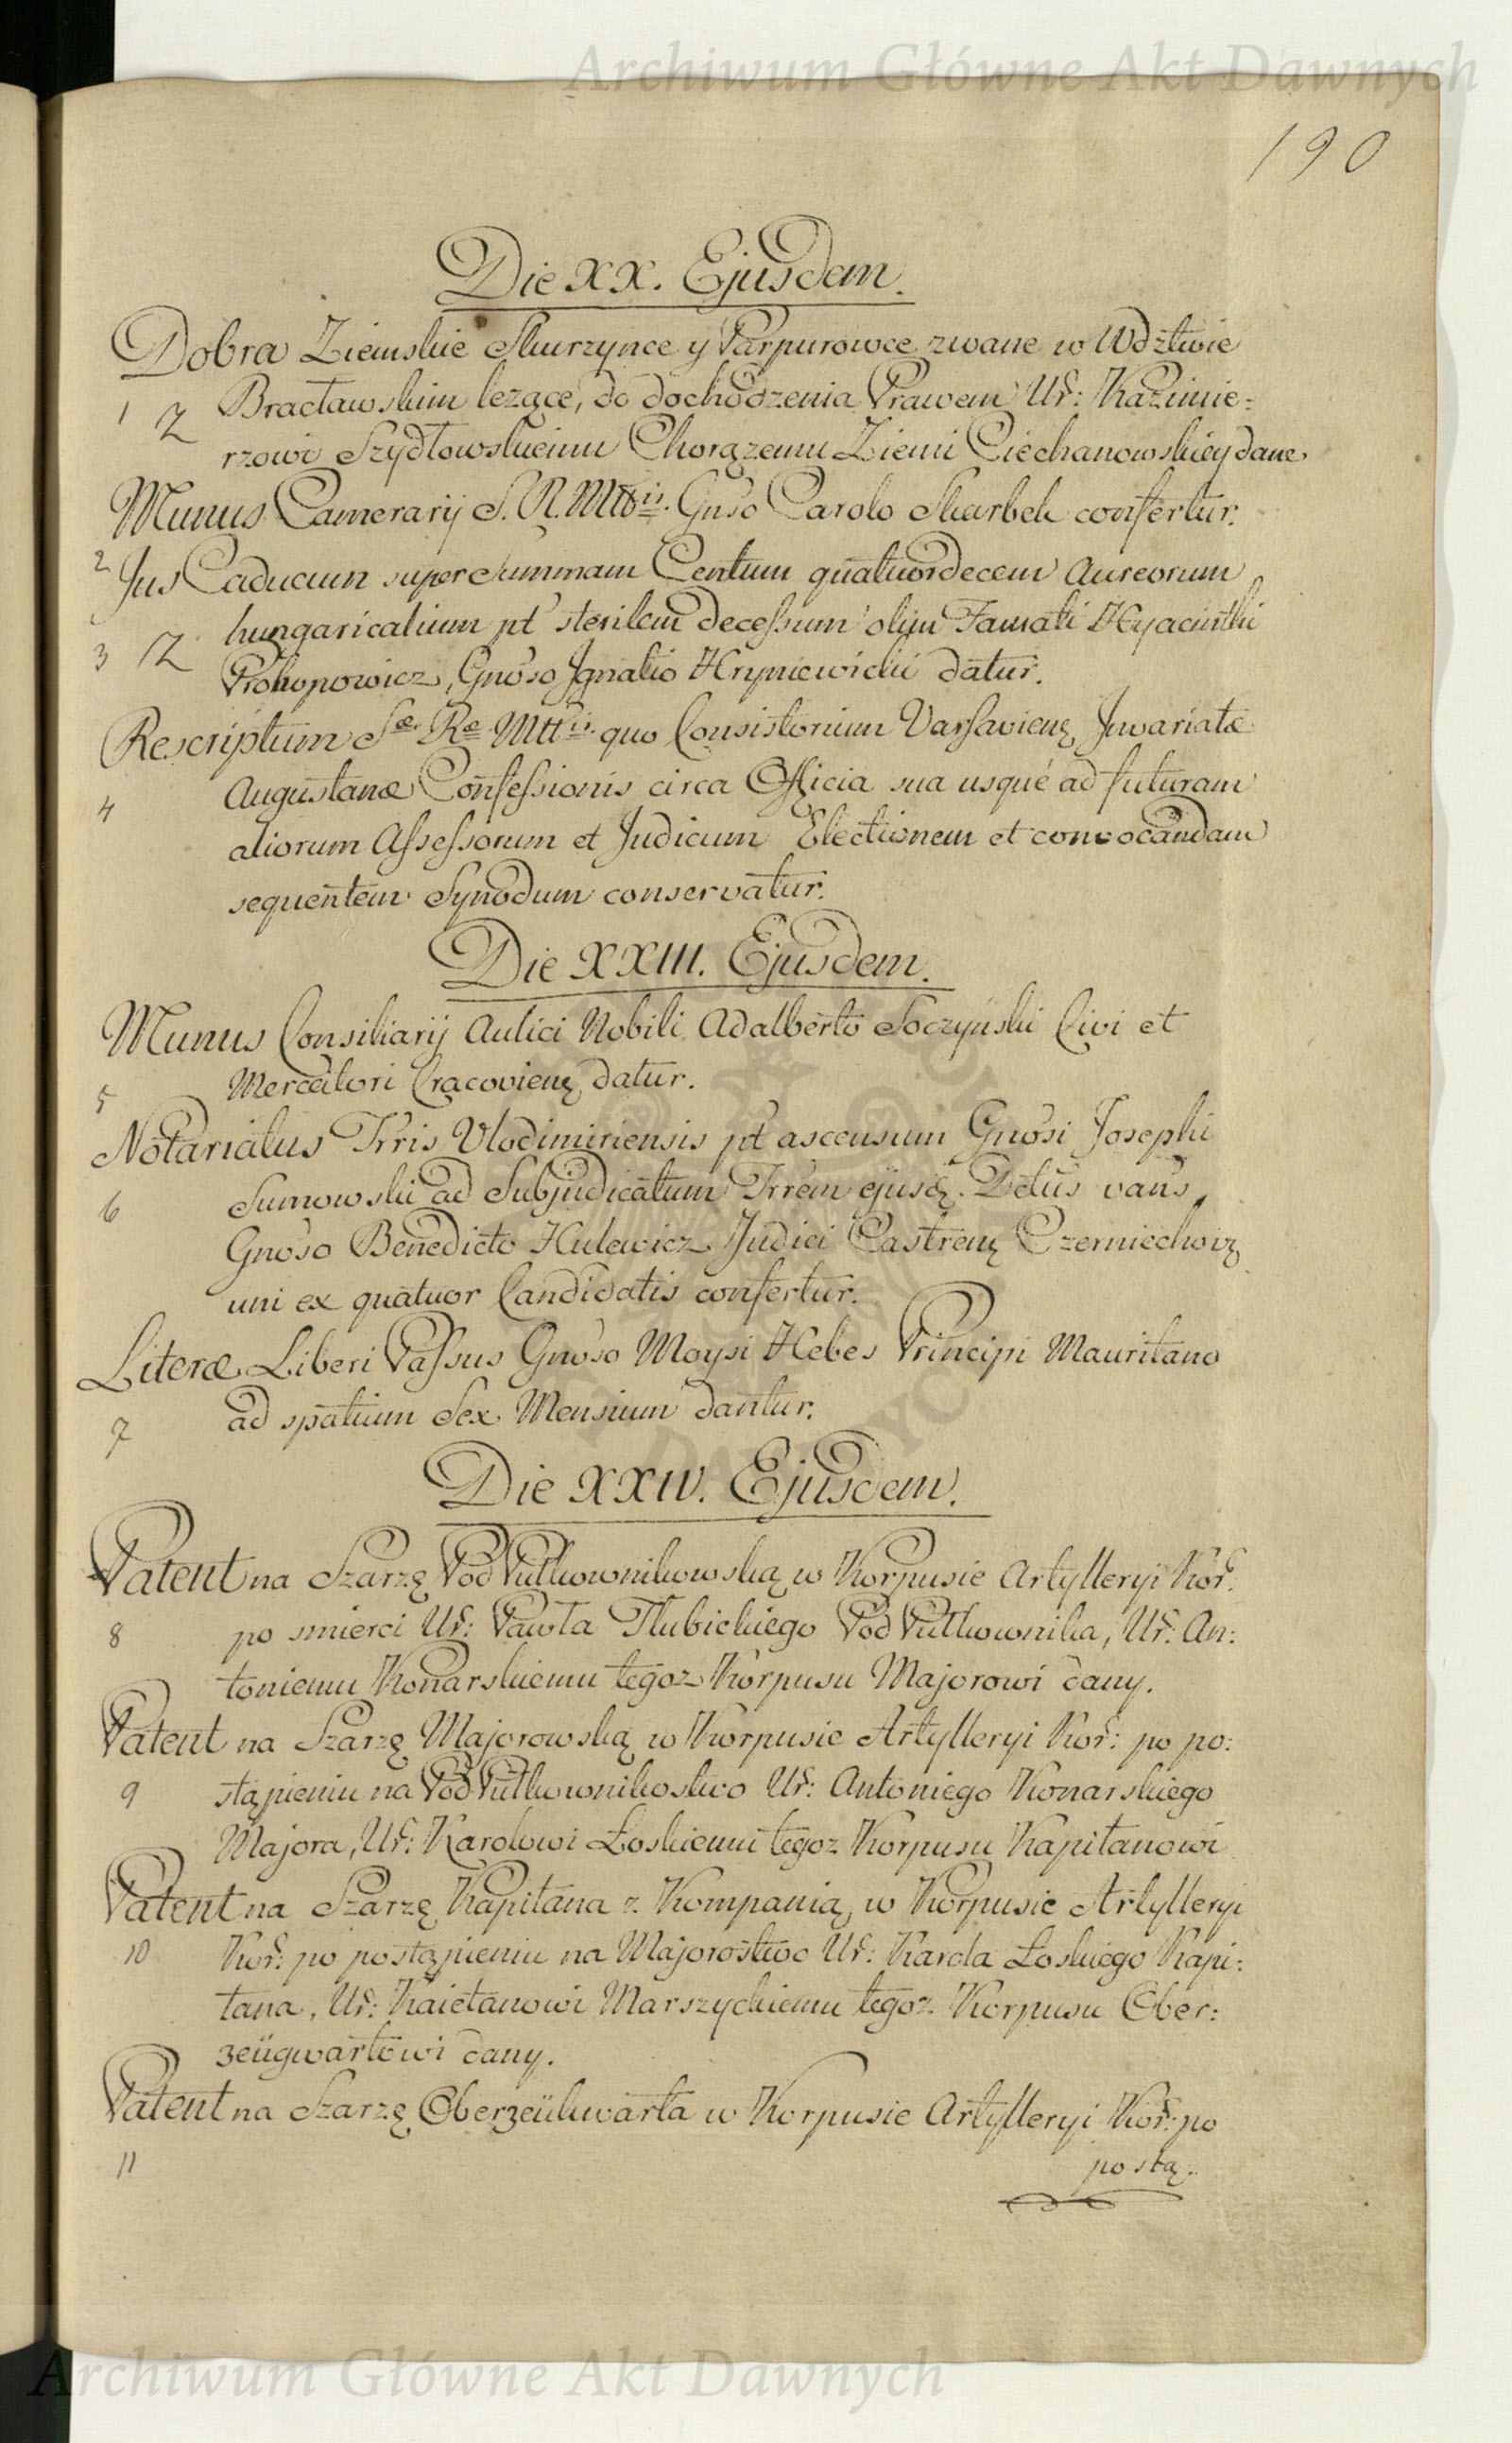 Archiwum Główne Akt Dawnych
190
Die XX. Ejusdem.
Dobra Ziemskie Skurzynce y Parpurowce zwane w Wdztwie
1 Z Bracławskim lezące, do dochodzenia Prawem Ur: Kazimie:
rzowi Szydłowskiemu Chorązemu Ziemi Ciechanowskiey dane
Munus Camerarij S. R. Mttis. Gnso Carolo Skarbek confertur.
2 Jus Caducum super Summam Centum quatuordecem Aureorum
hungaricalium pt sterilem decessum olim Famati Hyacinthi
3 Z Prokopowicz, Gnoso Ignatio Hryniewicki datur.
Rescriptum Sæ Ræ Mttis. quo Consistorium Varsavienę Invariatæ
Augustanæ Confessionis circa Officia sua usque ad futuram
4 aliorum Assessorum et Judicum Electionem et convocandam
sequentem Synodum conservatur.
Die XXIII. Ejusdem.
Munus Consiliarij Aulici Nobili Adalberto Soczyński Civi et
5 Mercatori Cracovienę datur.
Notariatus Trris Vlodimiriensis pt ascensum Gnosi Josephi
6 Sumowski ad Subjudicatum Trrem ejusdę. Detus vans,
Gnoso Benedicto Hulewicz Judici Castrenę Czerniechovię
uni ex quatuor Candidatis confertur.
Literæ Liberi Passus Gnoso Moysi Hebes Principi Mauritano
7 ad spatium Sex Mensium dantur.
Die XXIV. Ejusdem.
Patent na Szarzę Pod Pułkownikowską w Korpusie Artylleryi Kor:
8 po smierci Ur: Pawła Tłubickiego Pod Pułkownika, Ur: An:
toniemu Konarskiemu tegoz Korpusu Majorowi dany.
Patent na Szarzę Majorowską w Korpusie Artylleryi Kor: po po:
9 stąpieniu na Pod Pułkownikostwo Ur: Antoniego Konarskiego
Majora, Ur: Karolowi Łoskiemu tegoz Korpusu Kapitanowi
Patent na Szarzę Kapitana z Kompanią, w Korpusie Artylleryi
10 Kor: po postąpieniu na Majorostwo Ur: Karola Łoskiego Kapi:
tana, Ur: Kaietanowi Marszyckiemu tegoz Korpusu Ober:
zeügwartowi dany.
Patent na Szarzę Oberzeükwarta w Korpusie Artylleryi Kor: po
11 postą:
Archiwum Główne Akt Dawnych